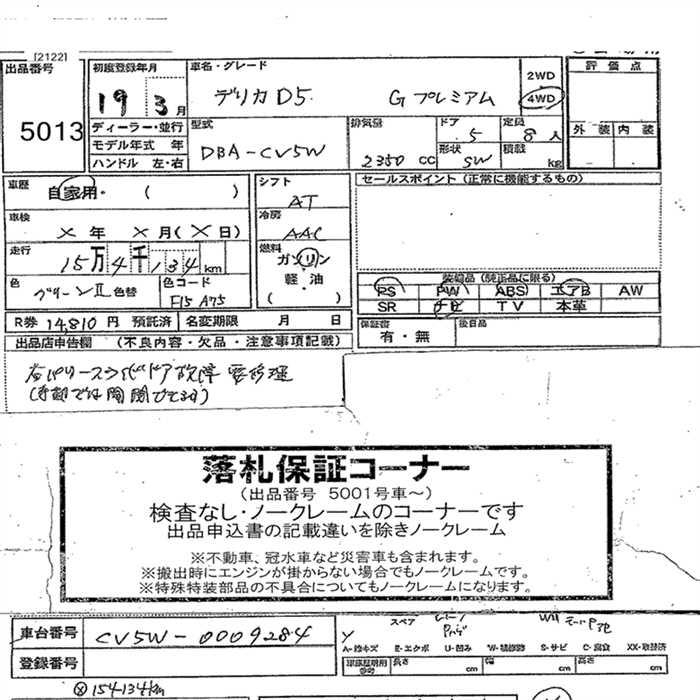 [2122]
出品番号
5013
初度登録年月
19 3月
ディーラー・並行
モデル年式 年
ハンドル 左・右
車名・グレード
デリカD5 Gプレミアム
2WD
4WD
型式
DBA-CV5W
排気量
2350 cc
ドア
5
定員
8人
形状
SW
積載
kg
評価点
外装 内装
車歴
自家用・ ( )
車検
× 年 × 月(× 日)
走行
15万4千134km
色
グリーンⅡ 色替
色コード
F15 A75
シフト
AT
冷房
AAC
燃料
ガソリン
軽・油
( )
セールスポイント (正常に機能するもの)
装備品 (純正品に限る)
PS PW ABS エアB AW
SR ナビ TV 本革
R券 14,810 円 預託済 名変期限 月 日
保証書
有・無
後日品
出品店申告欄 (不良内容・欠品・注意事項記載)
パワースライドドア故障 要修理
(手動では開閉できます)
落札保証コーナー
(出品番号 5001号車~)
検査なし・ノークレームのコーナーです
出品申込書の記載違いを除きノークレーム
※不動車、冠水車など災害車も含まれます。
※搬出時にエンジンが掛からない場合でもノークレームです。
※特殊特装部品の不具合についてもノークレームになります。
車台番号
CV5W-0009284
登録番号
スペア
A-線キズ E-エクボ U-凹み W-補修跡 S-サビ C-腐食 XX-取替済
車庫証明用
参考
長さ
cm
幅
cm
高さ
cm
154134km